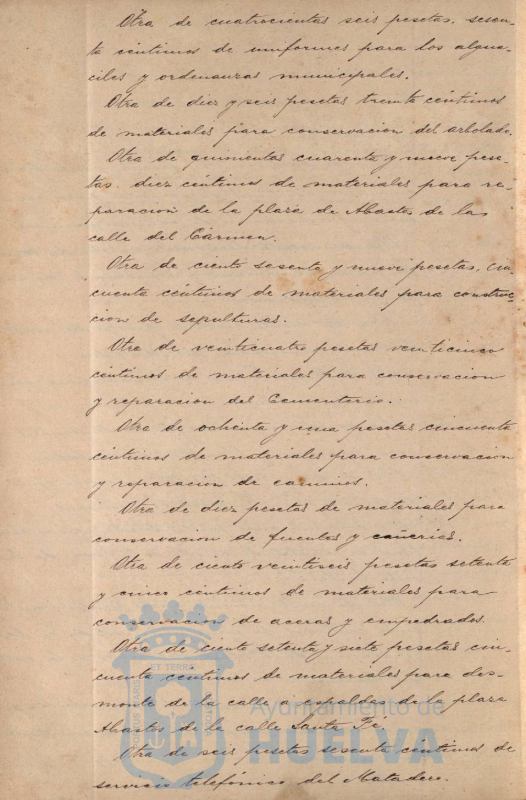 Otra de cuatrocientas seis pesetas, sesen-
ta céntimos de uniformes para los algua-
ciles y ordenanzas municipales.
Otra de diez y seis pesetas treinta céntimos
de materiales para conservacion del arbolado.
Otra de quinientas cuarenta y nueve pese-
tas diez céntimos de materiales para re-
paracion de la plaza de Abastos de la
calle del Cármen.
Otra de ciento sesenta y nueve pesetas, cin-
cuenta céntimos de materiales para construc-
cion de sepulturas.
Otra de veinticuatro pesetas veinticinco
céntimos de materiales para conservacion
y reparacion del Cementerio.
Otra de ochenta y una pesetas cincuenta
céntimos de materiales para conservacion
y reparacion de caminos.
Otra de diez pesetas de materiales para
conservacion de fuentes y cañerias.
Otra de ciento veintiseis pesetas setenta
y cinco céntimos de materiales para
conservacion de aceras y empedrados.
Otra de ciento setenta y siete pesetas cin-
cuenta centimos de materiales para des-
monte de la calle a espaldas de la plaza
Abastos de la calle Santa Fé.
Otra de seis pesetas sesenta céntimos de
servicio telefónico del Matadero.
ET TERRÆ
PORTUS MARIS
CUSTODIA
Ayuntamiento de
HUELVA